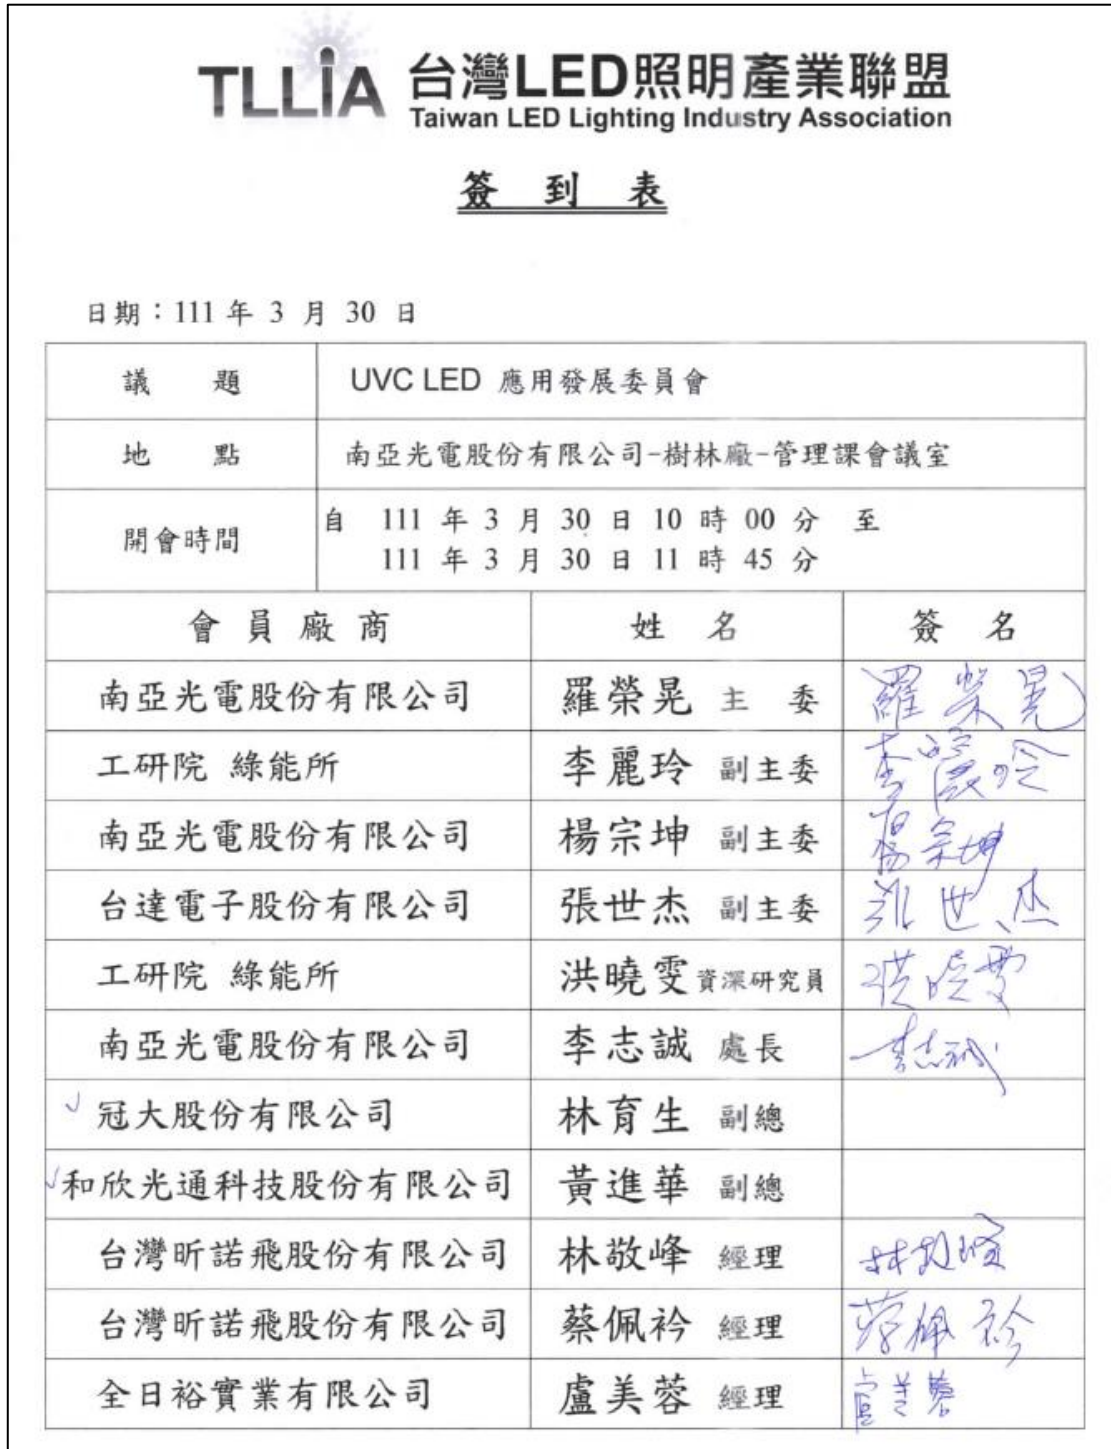 TLLIA 台灣LED照明產業聯盟
Taiwan LED Lighting Industry Association
簽 到 表
日期：111 年 3 月 30 日
議 題 UVC LED 應用發展委員會
地 點 南亞光電股份有限公司-樹林廠-管理課會議室
開會時間 自 111 年 3 月 30 日 10 時 00 分 至
111 年 3 月 30 日 11 時 45 分
會 員 廠 商 姓 名 簽 名
南亞光電股份有限公司 羅榮晃 主 委 羅榮晃
工研院 綠能所 李麗玲 副主委 李麗玲
南亞光電股份有限公司 楊宗坤 副主委 楊宗坤
台達電子股份有限公司 張世杰 副主委 張世杰
工研院 綠能所 洪曉雯 資深研究員 洪曉雯
南亞光電股份有限公司 李志誠 處長 李志誠
冠大股份有限公司 林育生 副總
和欣光通科技股份有限公司 黃進華 副總
台灣昕諾飛股份有限公司 林敬峰 經理 林敬峰
台灣昕諾飛股份有限公司 蔡佩衿 經理 蔡佩衿
全日裕實業有限公司 盧美蓉 經理 盧美蓉